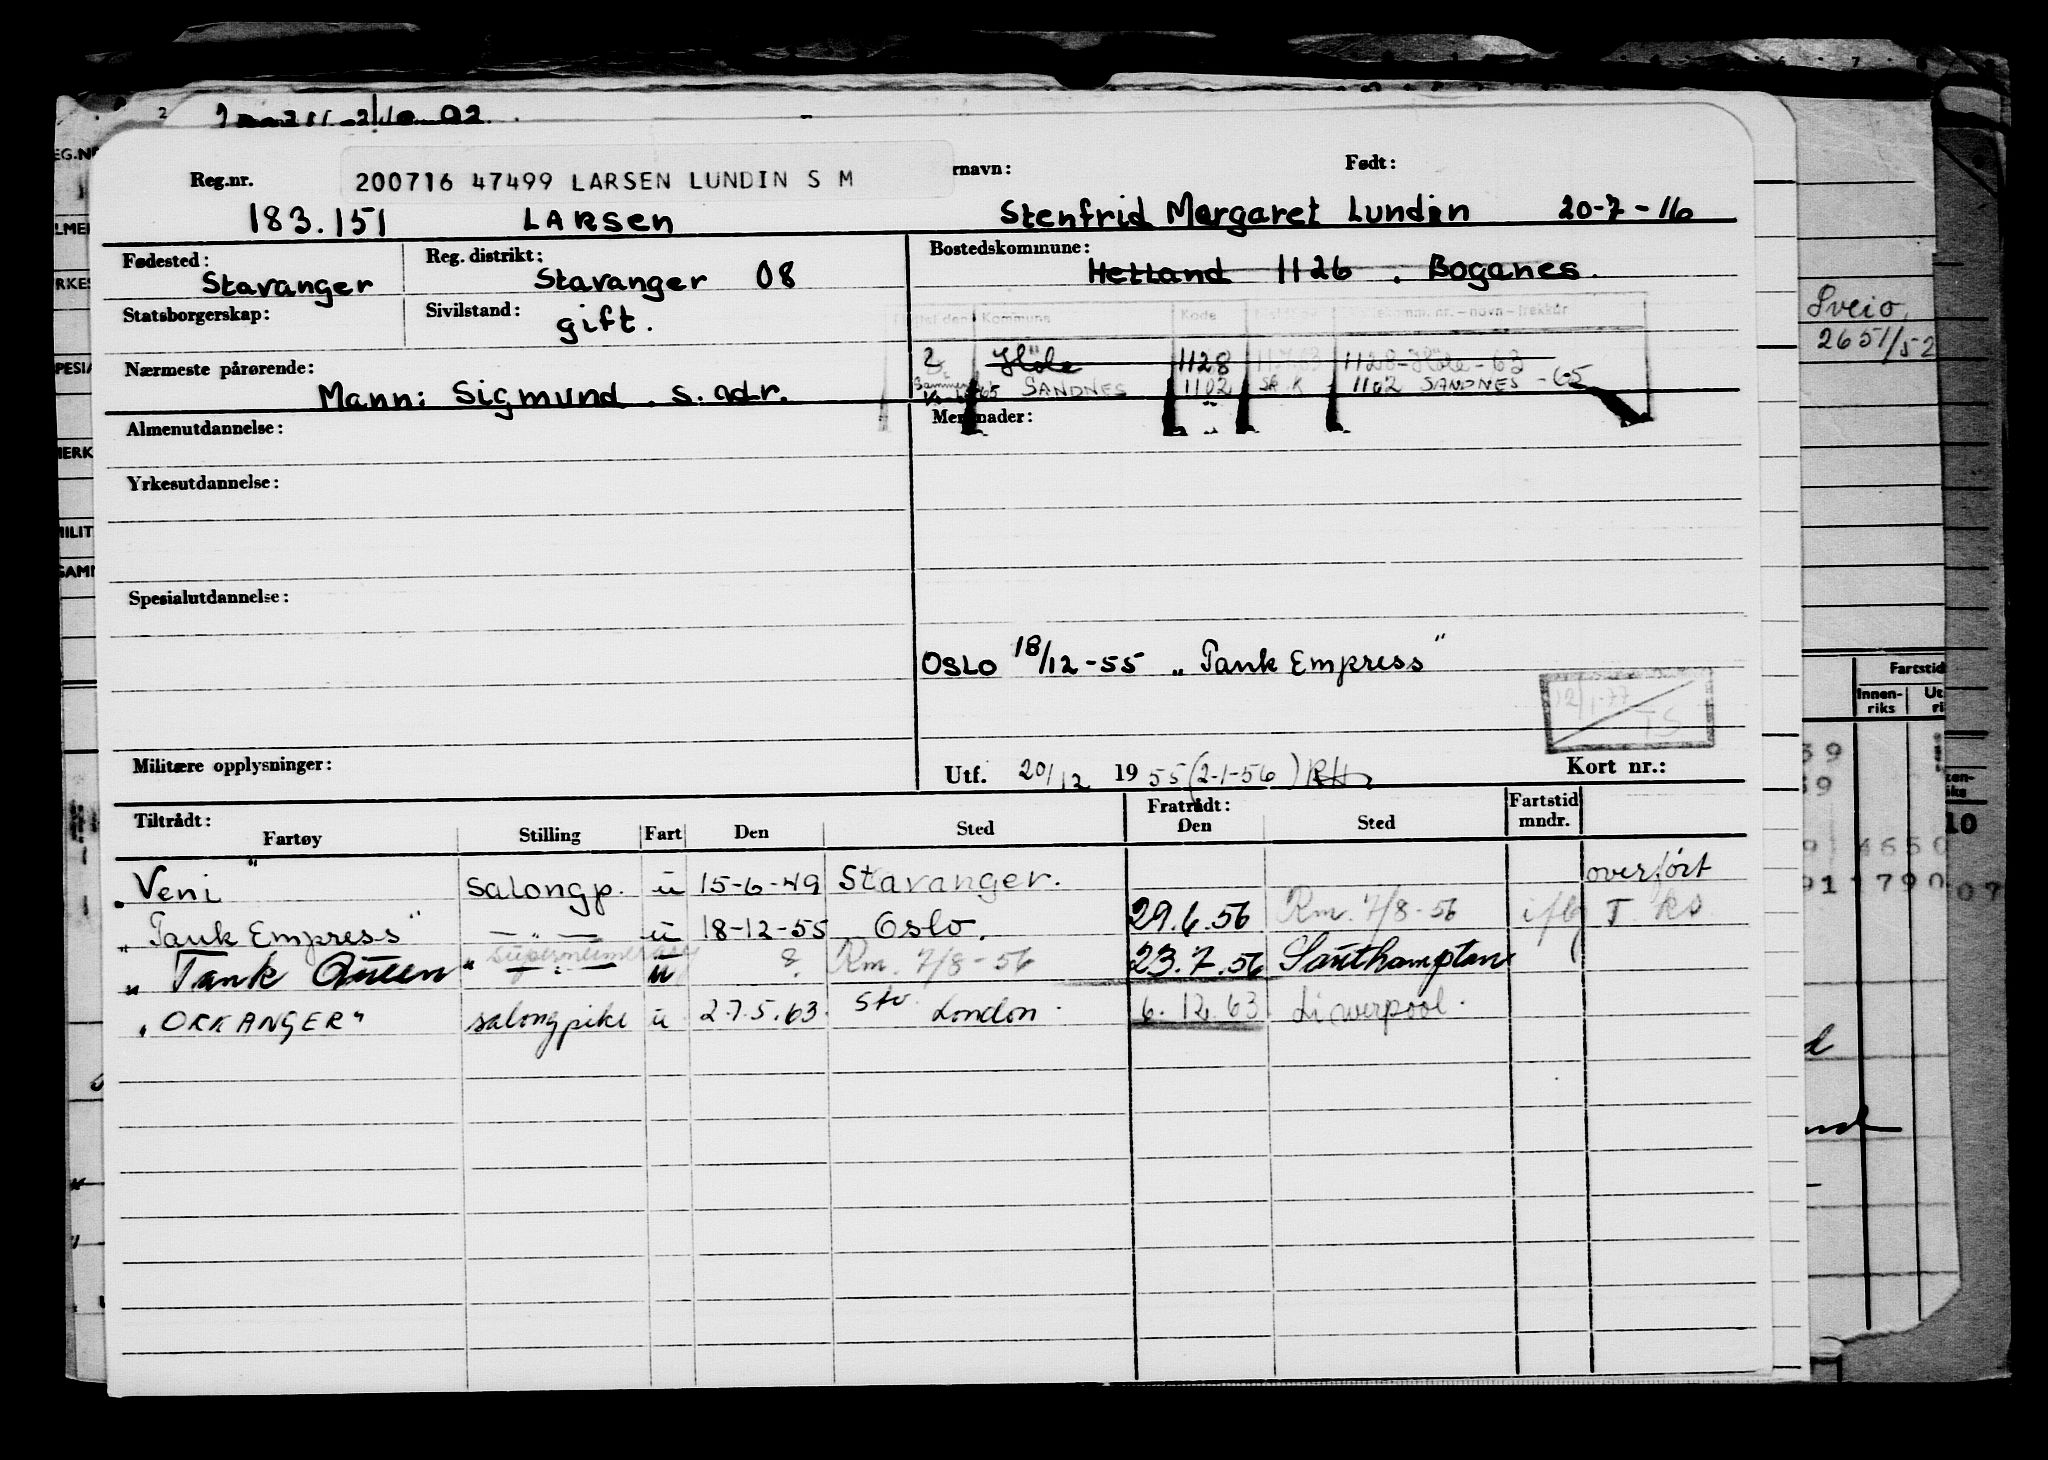 Reg.nr.
200716 47499 LARSEN LUNDIN S M
rnavn:
Født:
183.151 LARSEN Stenfrid Margaret Lundin 20-7-16
Fødested: Stavanger
Reg. distrikt: Stavanger 08
Bostedskommune: Hetland 1126 . Boganes.
Statsborgerskap:
Sivilstand: gift.
Kommune Kode
2 Høle 1128 1128-Høle-63
SANDNES 1102 1102 SANDNES -65
Nærmeste pårørende: Mann: Sigmund . s. adr.
Almenutdannelse:
Merknader:
Yrkesutdannelse:
Spesialutdannelse:
OSLO 18/12-55 „Tank Empress"
12/1-77
TS
Militære opplysninger:
Utf. 20/12 1955 (2-1-56)
Kort nr.:
Tiltrådt:
Fratrådt:
Fartøy Stilling Fart Den Sted Den Sted Fartstid mndr.
„Veni" salongp. u 15-6-49 Stavanger. overført
„Tank Empress" — „ — u 18-12-55 Oslo. 29.6.56 Rm. 7/8-56
„Tank Queen" supernumerary — „ — u ? Rm. 7/8-56 23.7.56 Southampton
„ORKANGER" salongpike u 27.5.63. London. 6.12.63 Liverpool.
Sveio
2651/52
Fartstid
Innen-
riks
Ut
ri
10